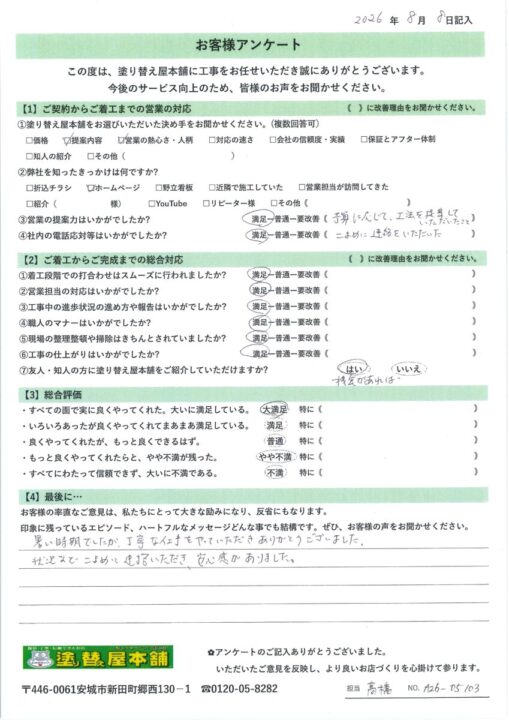 2026年 8月 8日記入
お客様アンケート
この度は、塗り替え屋本舗に工事をお任せいただき誠にありがとうございます。
今後のサービス向上のため、皆様のお声をお聞かせください。
【1】ご契約からご着工までの営業の対応 《 》に改善理由をお聞かせください。
①塗り替え屋本舗をお選びいただいた決め手をお聞かせください。（複数回答可）
□価格 ☑提案内容 ☑営業の熱心さ・人柄 □対応の速さ □会社の信頼度・実績 □保証とアフター体制
□知人の紹介 □その他（ ）
②弊社を知ったきっかけは何ですか？
□折込チラシ ☑ホームページ □野立看板 □近隣で施工していた □営業担当が訪問してきた
□紹介（ 様） □YouTube □リピーター様 □その他《 》
③営業の提案力はいかがでしたか？ 満足ー普通ー要改善《予算に応じて、工法を提案していただいたこと》
④社内の電話応対等はいかがでしたか？ 満足ー普通ー要改善《こまめに連絡をいただいた》
【2】ご着工からご完成までの総合対応 《 》に改善理由をお聞かせください。
①着工段階での打合わせはスムーズに行われましたか？ 満足ー普通ー要改善《 》
②営業担当の対応はいかがでしたか？ 満足ー普通ー要改善《 》
③工事中の進歩状況の進め方や報告はいかがでしたか？ 満足ー普通ー要改善《 》
④職人のマナーはいかがでしたか？ 満足ー普通ー要改善《 》
⑤現場の整理整頓や掃除はきちんとされていましたか？ 満足ー普通ー要改善《 》
⑥工事の仕上がりはいかがでしたか？ 満足ー普通ー要改善《 》
⑦友人・知人の方に塗り替え屋本舗をご紹介していただけますか？ はい いいえ
機会があれば
【3】総合評価
・すべての面で実に良くやってくれた。大いに満足している。 大満足 特に《 》
・いろいろあったが良くやってくれてまあまあ満足している。 満足 特に《 》
・良くやってくれたが、もっと良くできるはず。 普通 特に《 》
・もっと良くやってくれたらと、やや不満が残った。 やや不満 特に《 》
・すべてにわたって信頼できず、大いに不満である。 不満 特に《 》
【4】最後に…
お客様の率直なご意見は、私たちにとって大きな励みになり、反省にもなります。
印象に残っているエピソード、ハートフルなメッセージどんな事でも結構です。ぜひ、お客様の声をお聞かせください。
暑い時期でしたが、丁寧な仕事をやっていただきありがとうございました。
状況などこまめに連絡いただき、安心感がありました。
塗り替え屋本舗
✿アンケートのご記入ありがとうございました。
いただいたご意見を反映し、より良いお店づくりを心掛けて参ります。
〒446-0061安城市新田町郷西130－1 ☎0120-05-8282
担当 高橋 NO. N26-05103